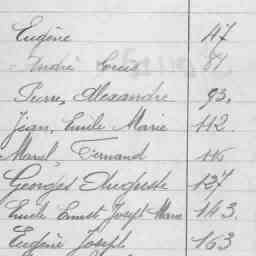 Eugène 47
André Louis 81
Pierre, Alexandre 93.
Jean, Emile Marie 112.
Marcel, Fernand 116
Georges Auguste 137
Emile Ernest Joseph Marie 143.
Eugène Joseph 163